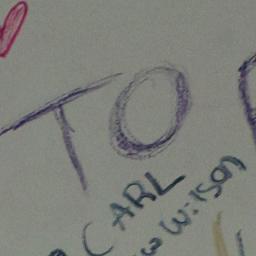 TO
CARL
Wilson